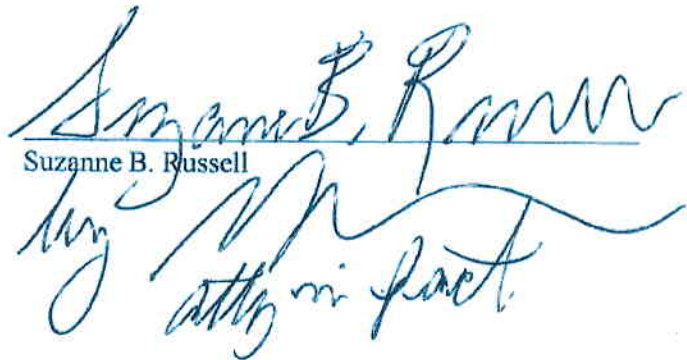 Suzanne B. Russell
Suzanne B. Russell
by
atty in fact